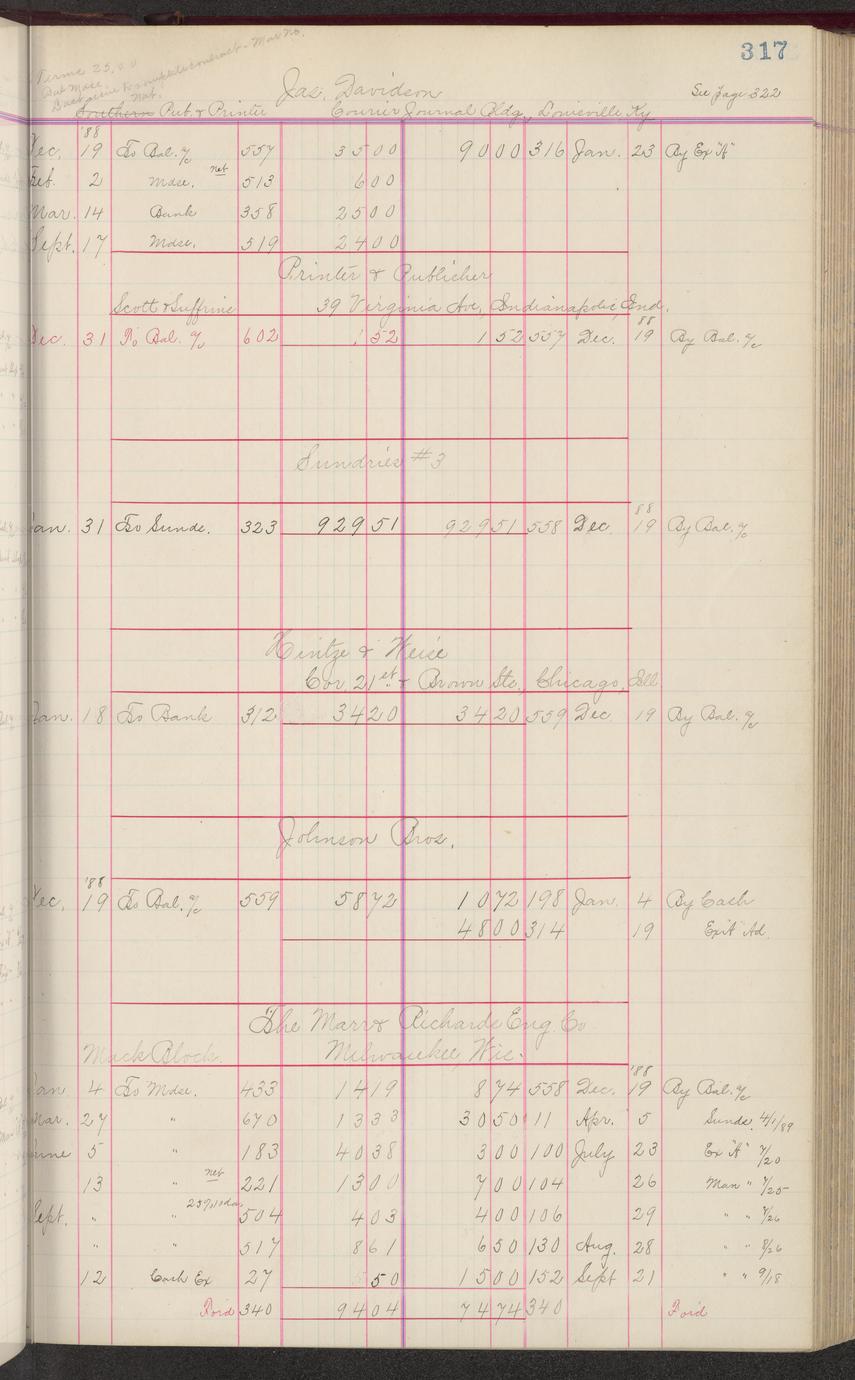 317
Terms 25.00
Jas. Davidson
See page 322
Southern Pub. & Printer Courier Journal Bldg., Louisville Ky
'88
Dec. 19 To Bal. a/c 557 35 00 90 00 316 Jan. 23 By Ex "A"
Feb. 2 Mdse. net 513 6 00
Mar. 14 Bank 358 25 00
Sept. 17 Mdse. 519 24 00
Printer & Publisher
Scott & 39 Virginia Ave, Indianapolis, Ind.
88
Dec. 31 To Bal. a/c 602 1 52 1 52 557 Dec. 19 By Bal. a/c
Sundries #3
88
Jan. 31 To Sunds. 323 929 51 929 51 558 Dec. 19 By Bal. a/c
Hintze & Weise
Cor. 21st & Brown Sts., Chicago, Ill
Jan. 18 To Bank 312 34 20 34 20 559 Dec. 19 By Bal. a/c
Johnson Bros.
'88
Dec. 19 To Bal. a/c 559 58 72 10 72 198 Jan. 4 By Cash
48 00 314 19 Ex "A" Ad.
The Marr & Richards Eng. Co
Mack Block. Milwaukee, Wis.
'88
Jan 4 To Mdse. 433 14 19 8 74 558 Dec. 19 By Bal. a/c
Mar. 27 " 670 13 33 30 50 11 Apr. 5 Sunds. 4/1/89
June 5 " 183 40 38 3 00 100 July 23 Ex "A" 7/20
13 " net 221 13 00 7 00 104 26 Man " 7/25
Sept. " " 504 4 03 4 00 106 29 " " 7/26
" " 517 8 61 6 50 130 Aug. 28 " " 8/26
12 Cash Ex 27 50 15 00 152 Sept 21 " " 9/18
Ford 340 94 04 74 74 340 Ford